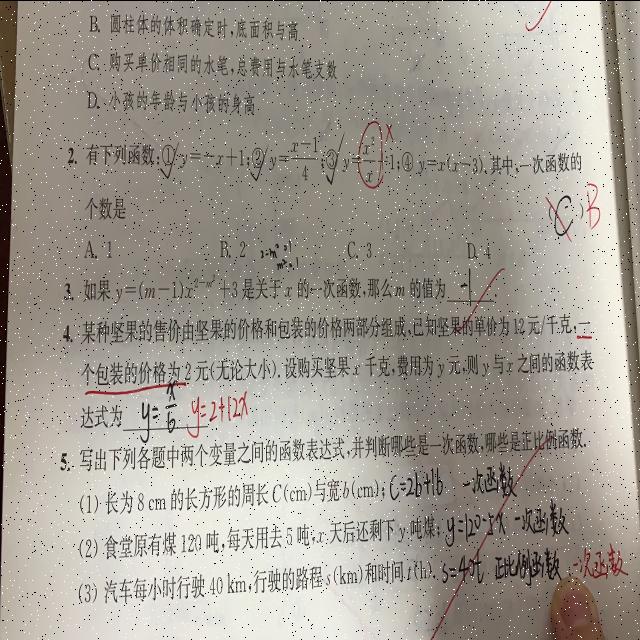 B. 圆柱体的体积确定时,底面积与高
C. 购买单价相同的水笔,总费用与水笔支数
D. 小孩的年龄与小孩的身高
2. 有下列函数:① y=-x+1;② y=\frac{x-1}{4};③ y=\frac{x^2}{x}+1;④ y=x(x-3).其中,一次函数的
个数是 (C)B
A. 1 B. 2 C. 3 D. 4
3. 如果 y=(m-1)x^{2-m^2}+3是关于 x 的一次函数,那么m 的值为 -1
4. 某种坚果的售价由坚果的价格和包装的价格两部分组成,已知坚果的单价为12元/千克,一
个包装的价格为2元(无论大小).设购买坚果 x 千克,费用为 y 元,则 y 与 x 之间的函数表
达式为 y=\frac{x}{6} y=2+12x
5. 写出下列各题中两个变量之间的函数表达式,并判断哪些是一次函数,哪些是正比例函数.
(1) 长为 8 cm 的长方形的周长 C(cm)与宽 b(cm); C=2b+16 一次函数
(2) 食堂原有煤 120 吨,每天用去 5 吨,x 天后还剩下 y 吨煤; y=120-5x 一次函数
(3) 汽车每小时行驶 40 km,行驶的路程 s(km)和时间 t(h). s=40t 正比例函数 一次函数